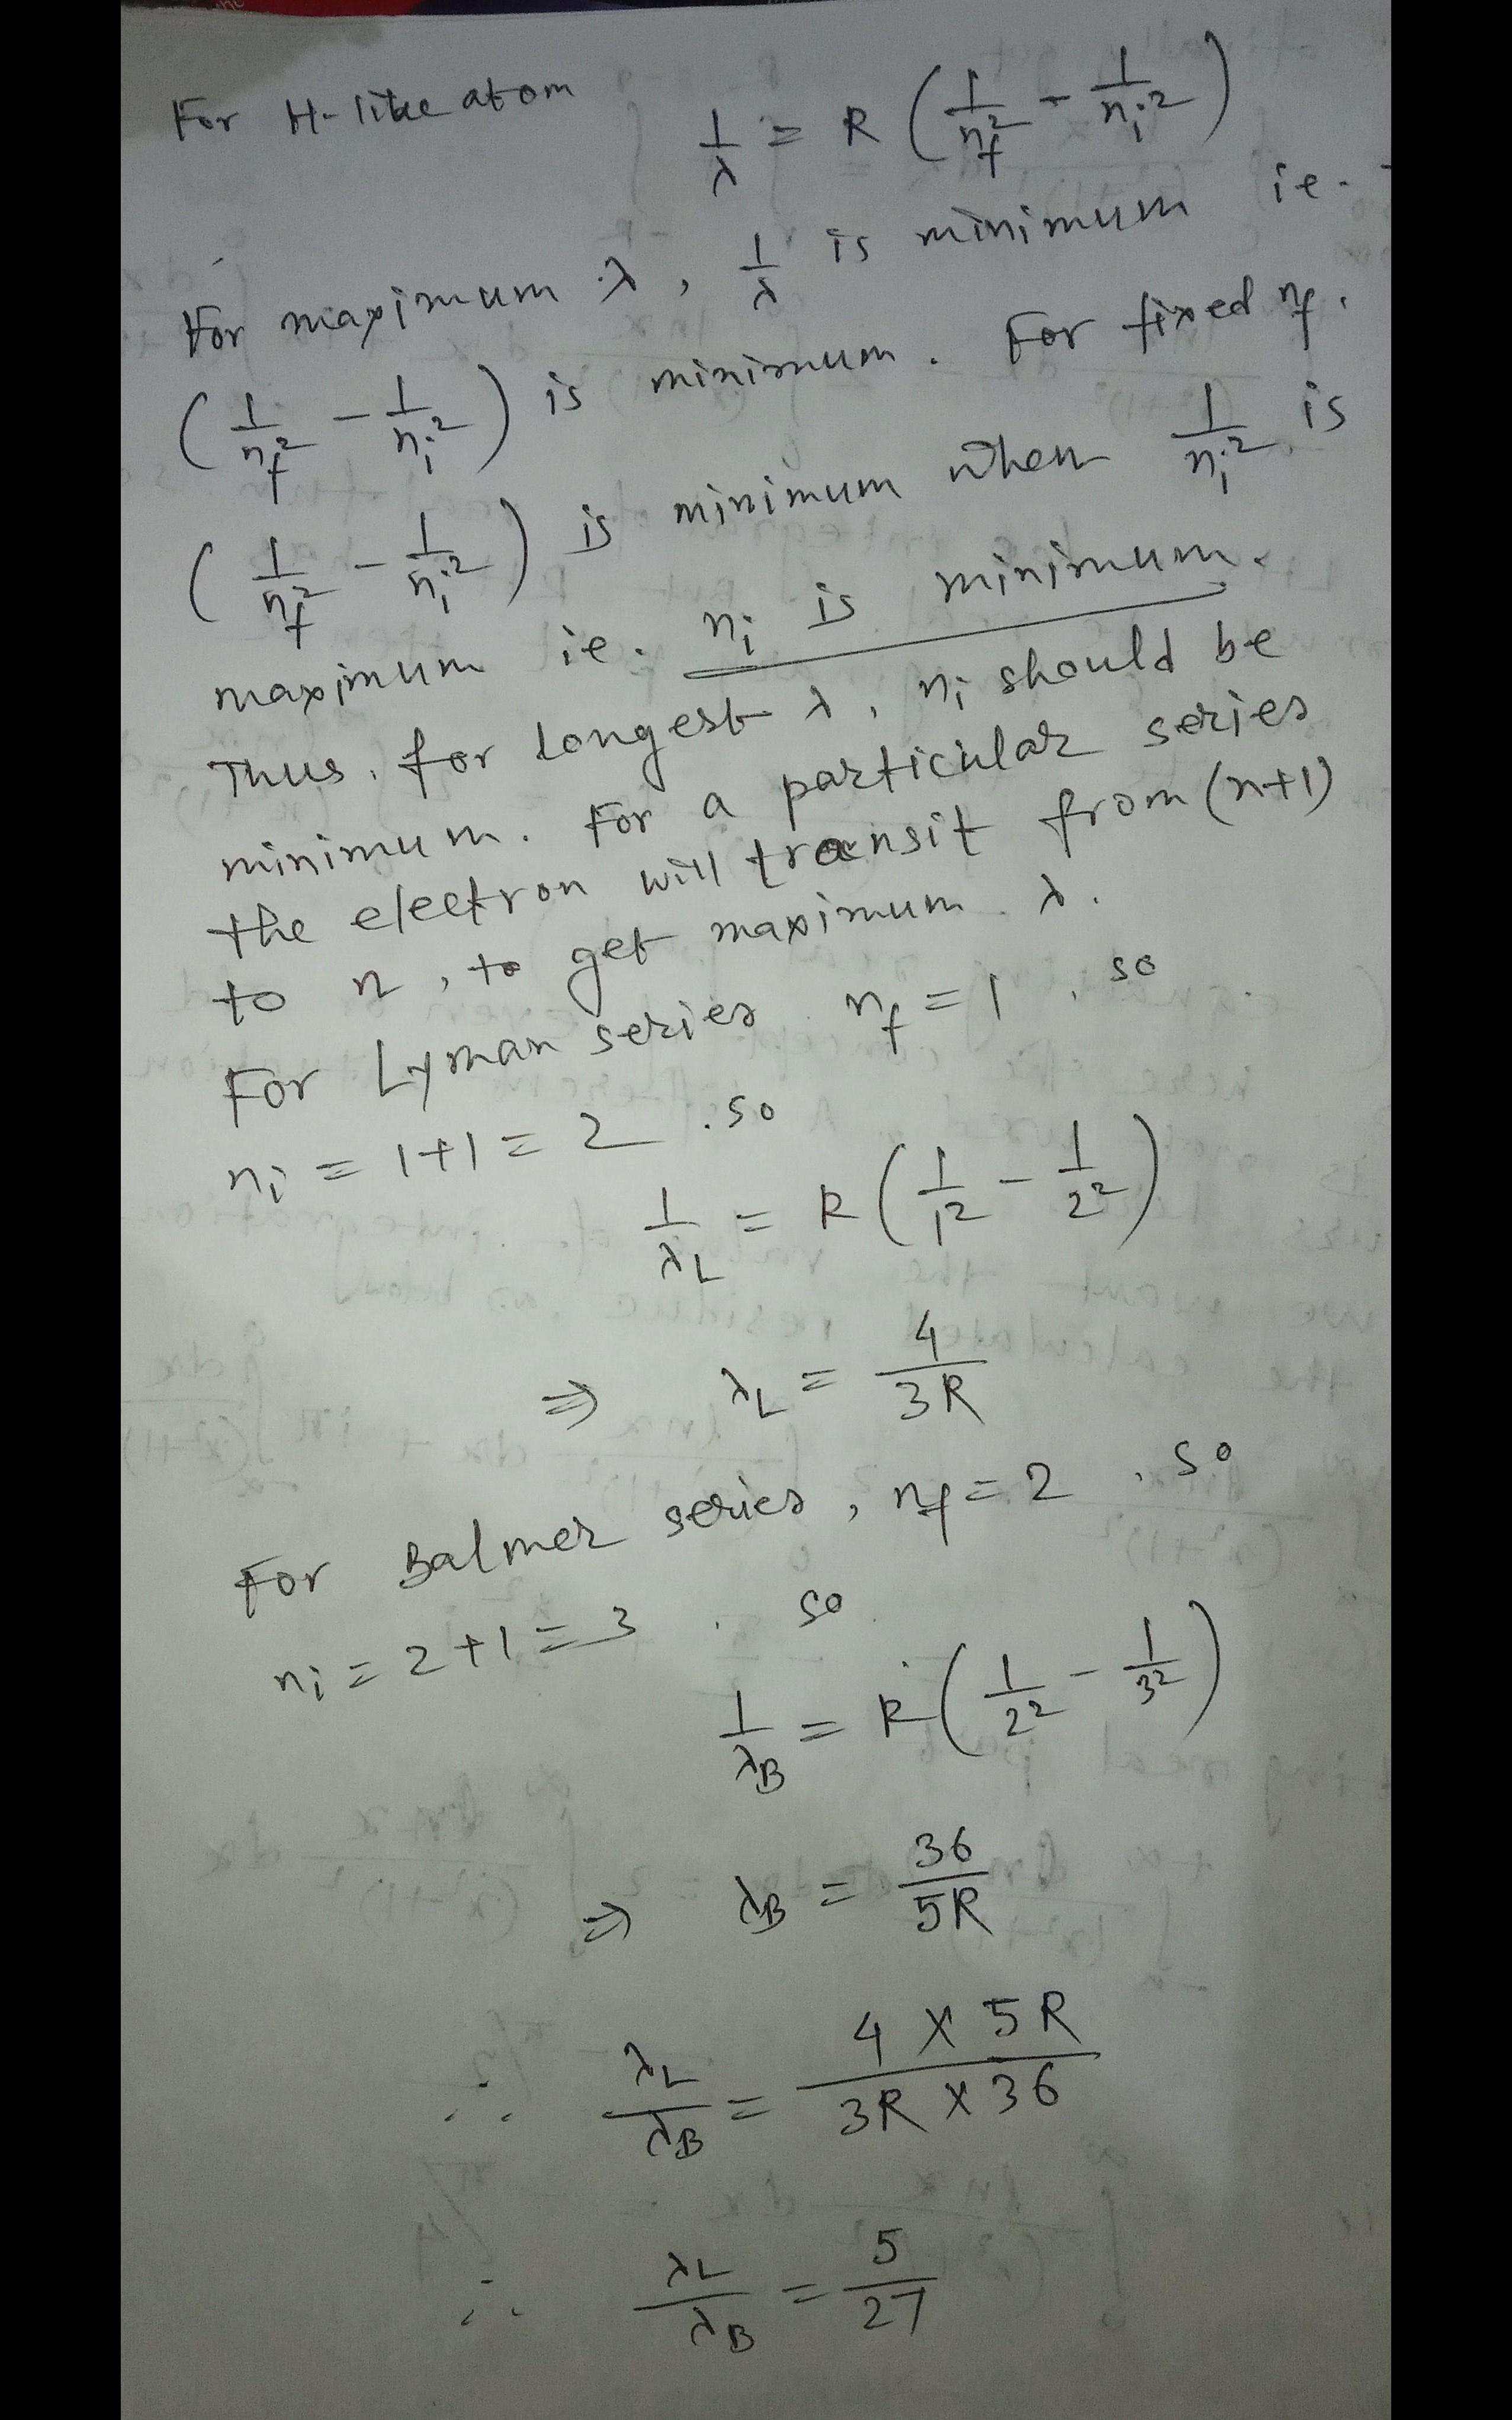 For H-like atom
1/λ = R (1/n_f² - 1/n_i²)
For maximum λ, 1/λ is minimum ie.
(1/n_f² - 1/n_i²) is minimum. For fixed n_f,
(1/n_f² - 1/n_i²) is minimum when 1/n_i² is
maximum ie. n_i is minimum.
Thus, for longest λ, n_i should be
minimum. For a particular series
the electron will transit from (n+1)
to n, to get maximum λ.
For Lyman series n_f = 1, so
n_i = 1+1 = 2. so
1/λ_L = R (1/1² - 1/2²)
⇒ λ_L = 4/3R
For Balmer series, n_f = 2, so
n_i = 2+1 = 3, so
1/λ_B = R (1/2² - 1/3²)
⇒ λ_B = 36/5R
∴ λ_L/λ_B = 4 × 5R / 3R × 36
∴ λ_L/λ_B = 5/27